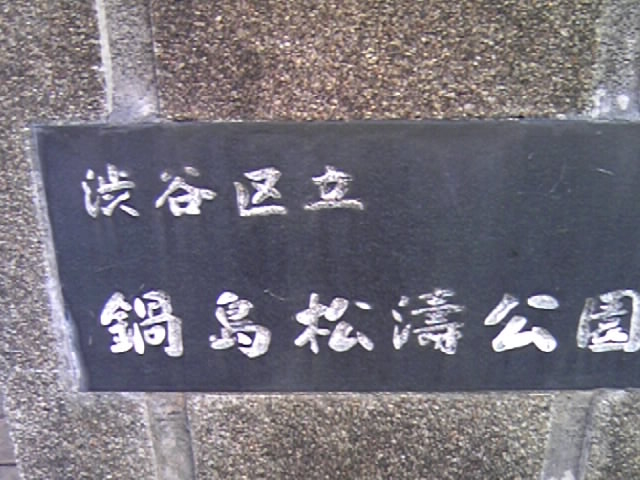 渋谷区立
鍋島松濤公園